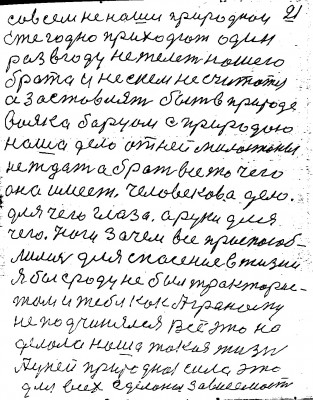 21
совсем не наши природном
ежегодно приходят один
раз в году не жлет нашего
брата и нескем не считаты
а заставлят быть в природе
вояка баруом с природою
наша дело от ней милостыни
не ждат а брат все то чего
она имеет. человекова дело.
для чего глаза. а руки для
чего. Ноги зачем все приспособ-
лили для спасение в жизни
Я был сроду не был трактарис-
том и тебя как Аграному
не подчинялся Всё это на
делола наша такая жизн
А у ней природная сила это
для всех сделана зависемость